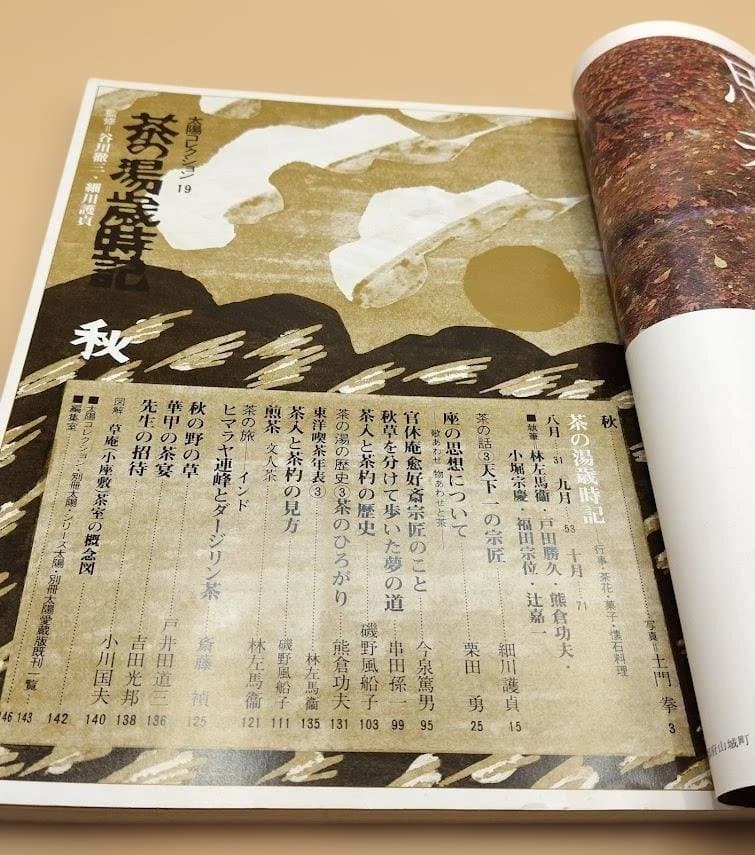 太陽コレクション19
茶の湯歳時記
監修＝谷川徹三、細川護貞
秋
秋
茶の湯歳時記 ─行事・茶花・菓子・懐石料理 写真＝土門 拳 3
八月 31 九月 53 十月 71
■執筆＝林左馬衞・戸田勝久・熊倉功夫・
小堀宗慶・福田宗位・辻嘉一
茶の話③天下一の宗匠 細川護貞 15
座の思想について 栗田 勇 25
歌あわせ 物あわせと茶
官休庵愈好斎宗匠のこと 今泉篤男 95
秋草を分けて歩いた夢の道 串田孫一 99
茶人と茶杓の歴史 磯野風船子 103
茶の湯の歴史③茶のひろがり 熊倉功夫 131
東洋喫茶年表③ 林左馬衞 135
茶人と茶杓の見方 磯野風船子 111
煎茶 文人茶 林左馬衞 121
茶の旅─インド
ヒマラヤ連峰とダージリン茶 斎藤 禎 125
秋の野の草 戸井田道三 136
華甲の茶宴 吉田光邦 138
先生の招待 小川国夫 140
図解 草庵〈小座敷〉茶室の概念図 142
■太陽コレクション・別冊太陽・シリーズ太陽・別冊太陽愛蔵版既刊一覧 143
■編集室 146
府山城町